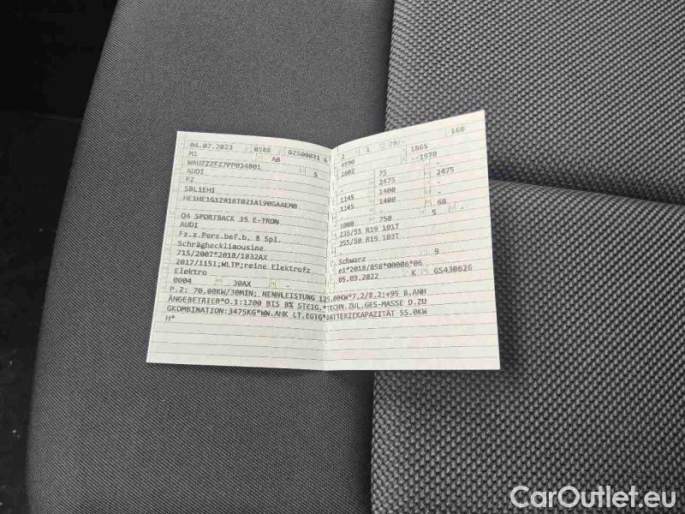 04.07.2023 0588
M1 AB
5
AUDI
FZ
Q4 SPORTBACK 35 E-TRON
AUDI
Fz.z.Pers.bef.b. 8 Spl.
Schräghecklimousine
715/2007*2018/1832AX
2017/1151;WLTP;reine Elektrofz
Elektro
0004 30AX
1865
--1970
75
2475 2475
1145 1400
1145 1400 68
1000 750 5
235/55 R19 101T
255/50 R19 103T
Schwarz 9
e1*2018/858*00006*06
05.09.2022 K GS430626
P.2: 70.00KW/30MIN; NENNLEISTUNG 125.00KW*7.2/8.2:+95 B.ANH
ÄNGEBETRIEB*O.1:1200 BIS 8% STEIG.*TECHN.ZUL.GES-MASSE D.ZU
GKOMBINATION:3475KG*WW.AHK LT.EGTG*BATTERIEKAPAZITÄT 55.0KW
H*
CarOutlet.eu